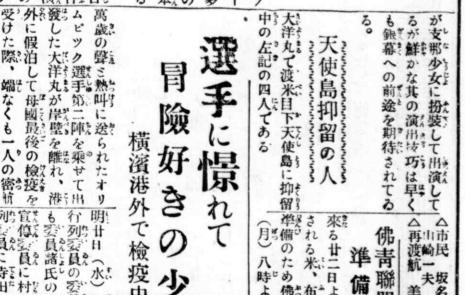 が支那少女に扮装して出演して
るが鮮かな其の演出技巧は早く
も銀幕への前途を期待されてゐ
る。
天使島抑留の人
大洋丸で渡米目下天使島に抑留
中の左記の四人である
△市民
山崎一夫
△再渡航
佛青聯盟
準備
來る廿二日よ
される米、布
準備のため佛
(月)八時よ
選手に憬れて
冒險好きの少
横濱港外で檢疫中
萬歳の聲と熱叫に送られたオリ
ムピック選手第二陣を乘せて出
發した大洋丸が岸壁を離れ、港
外に假泊して母國最後の檢疫を
受けた際、端なくも一人の密航
明廿日(水)
行列委員の
も委員諸氏の
宣傳委員に村
列委員に寺田